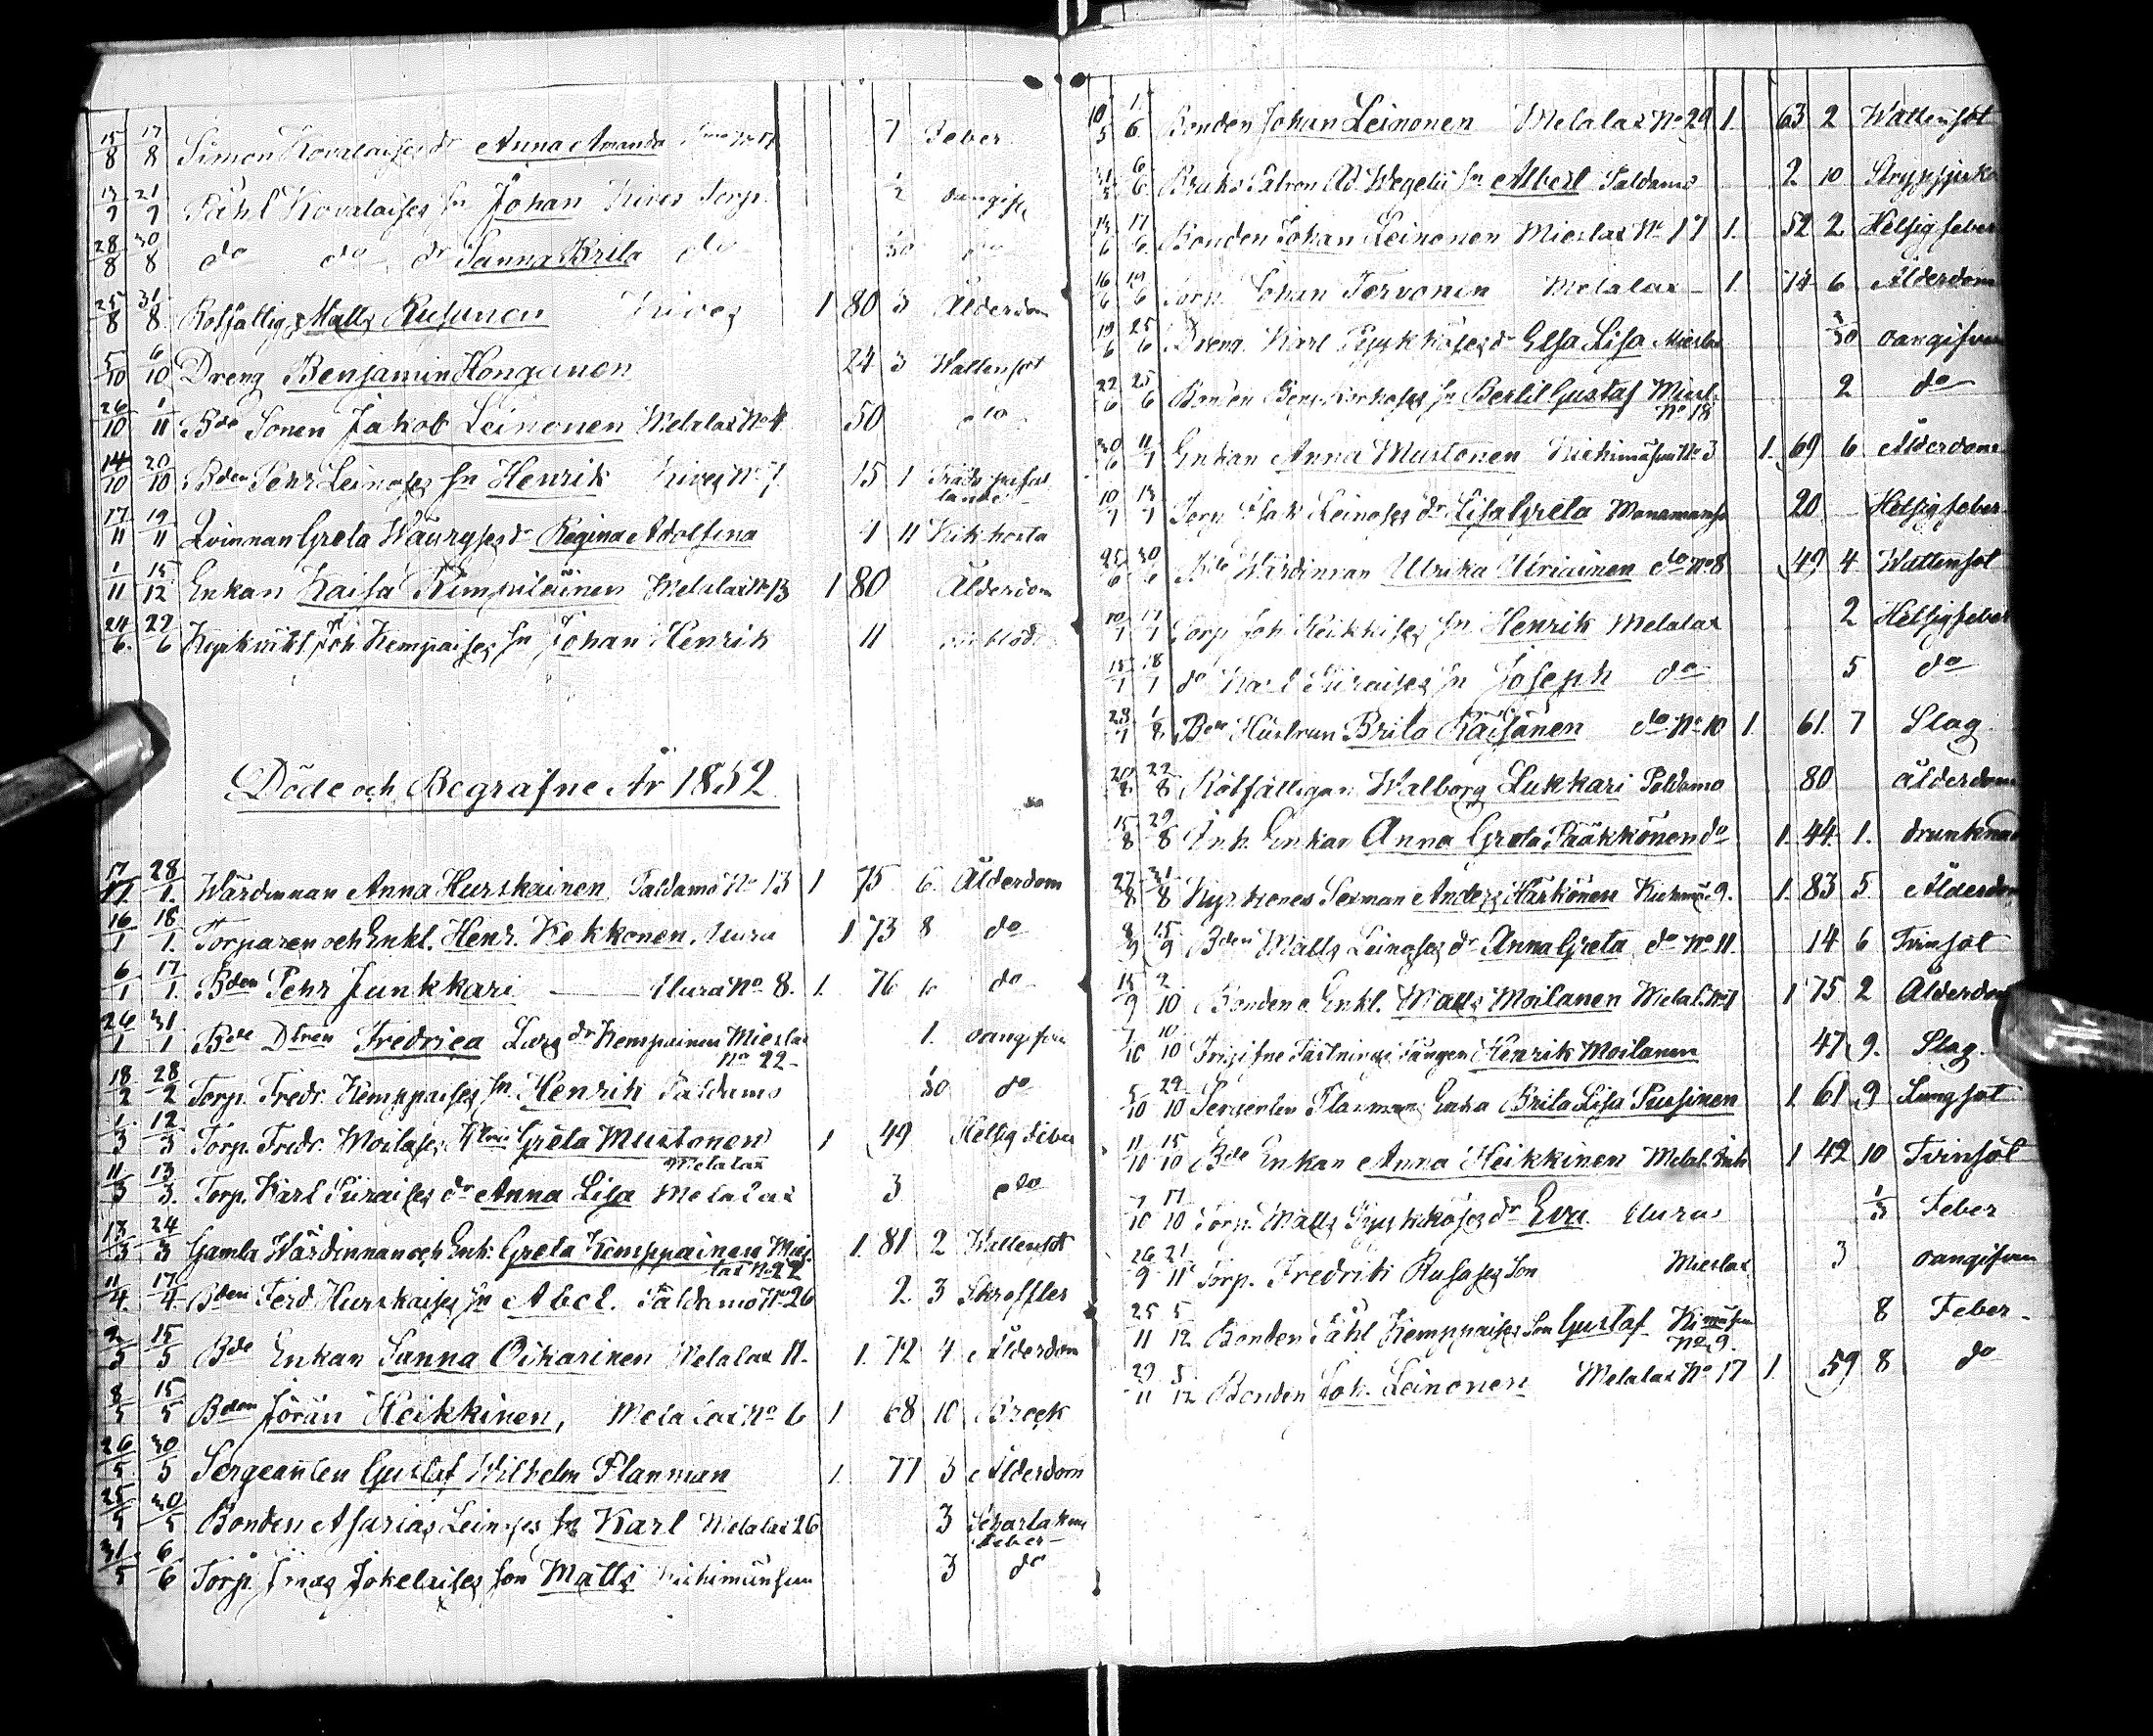 15/8 17/8 Simon Kovalaises dr Anna Amanda 7 Feber
13/7 21/7 Påhl Kovalaises sn Johan Kives Torp. 1/2 oangift
28/8 30/8 do do dr Sanna Brita do 1/30 do
25/8 31/8 Rotfattige Matts Rusanen Kives 1 80 3 Ålderdom
5/10 6/10 Dreng Benjamin Konganen 24 3 Wattensot
26/10 1/11 Bde Sonen Jakob Leinonen Melalax No 4 50 do
14/10 20/10 Bden Pehr Leinoses sn Henrik Kives No 7 15 1
17/11 19/11 Qvinnan Greta Wäuryses dr Regina Adolfina 1 11 Kikhosta
1/11 15/12 Enkan Kaisa Kimpiläinen Melalax No 13 1 80 Ålderdom
24/6 22/6 Joh Kempaises sn Johan Henrik 11
Döde och Begrafne År 1852
17/1 28/1 Wärdinnan Anna Hurskainen Paldamo No 13 1 75 6 Ålderdom
16/1 18/1 Torparen och Enkl. Henr. Kekkonen, Uura 1 73 8 do
6/1 17/1 Bden Pehr Junkkari Uura No 8. 1. 76 10 do
26/1 31/1 Bde Dtren Fredrica Lars dr Kempainen Mieslax 1. oangifven
No 22
18/2 28/2 Torp. Fredr. Kemppaises sn Henrik Paldamo 1/30 do
1/3 12/3 Torp. Fredr. Moilases Hstru Greta Mustonen 1 49 Hetsig Feber
Melalax
11/3 13/3 Torp. Karl Piiraises dr Anna Lisa Melalax 3 do
18/3 24/3 Gamla Wärdinnan och Enk. Greta Kemppainen Mies 1. 81 2 Wattensot
lax No 22
11/4 17/4 Bden Ferd Hurskaises sn Abel. Paldamo No 26 2 3 Skrofler
2/5 15/5 Bde Enkan Sanna Oikarinen Melalax 11. 1. 72 4 Ålderdom
8/5 15/5 Bden Jöran Heikkinen, Melalax No 6 1 68 10 Brock
26/5 30/5 Sergeanten Gustaf Wilhelm Flanman 1. 77 3 Ålderdom
25/5 30/5 Bonden Asarias Leinoses sn Karl Melalax 26 3 Scharlakans
Feber
31/5 6/6 Torp. Jokelaises son Matts Kiehimänsuu 3 do
10/5 1/6 Bonden Johan Leinonen Melalax No 29 1. 63 2 Wattensot
31/5 6/6 Bruks Patron Ad. Wegelii sn Albert Paldamo 2 10 Strypsjuka
13/6 17/6 Bonden Johan Leinonen Mieslax No 17 1. 52 2 Hetsig feber
16/6 19/6 Torp. Johan Torvonen Melalax 1. 74 6 Ålderdom
19/6 25/6 Dreng. Karl Pyykköses dr Elsa Lisa Mieslax 3/30 oangifven
22/6 25/6 Bonden Benj. Korhoses sn Bertil Gustaf Miesl. 2 do
No 18
30/6 11/7 Enkan Anna Mustonen Kiehimäsuu No 3 1. 69 6 Ålderdom
10/7 13/7 Torp Isak Leinoses dr Lisa Greta Manamansa 20 Hetsig feber
25/6 30/6 Bde Wärdinnan Ulrika Uriainen do No 8 49 4 Wattensot
10/7 17/7 Torp Joh Heikkises sn Henrik Melalax 2 Hetsig feber
15/7 18/7 do Karl Piiraises sn Joseph do 5 do
29/7 1/8 Bde Hustrun Brita Räisänen do No 10 1. 61. 7 Slag
20/8 22/8 Rotfattigan Walborg Lukkari Paldamo 80 ålderdom
15/8 29/8 Inh. Enkan Anna Greta Pääkkönen do 1. 44. 1. drunknad
27/8 31/8 Kyrkiones Sexman Anders Härkönen Kiehimä 9. 1. 83 5 Ålderdom
8/9 15/9 Bden Matts Leinoses dr Anna Greta do No 11. 14 6 Tvinsot
15/9 2/10 Bonden o Enkl. Matts Moilanen Melal. No 1 1 75 2 Ålderdom
7/10 10/10 Frigifne Fästnings Fången Henrik Moilanen 47 9. Slag.
5/10 29/10 Sergenten Flanmans Enka Brita Lisa Pursinen 1. 61 9 Lungsot
11/10 15/10 Bde Enkan Anna Heikkinen Melal. Inh 1 42 10 Tvinsot
7/10 17/10 Torp. Matts Pyykköses dr Eva Uura 1/3 Feber
26/9 21/11 Torp. Fredrik Rusases Son Mieslax 3 oangifven
25/11 5/12 Bonden Påhl Kemppaises Son Gustaf Kimäsuu 8 Feber
No 9.
29/11 5/12 Bonden Joh. Leinonen Melalax No 17 1. 59 8 do